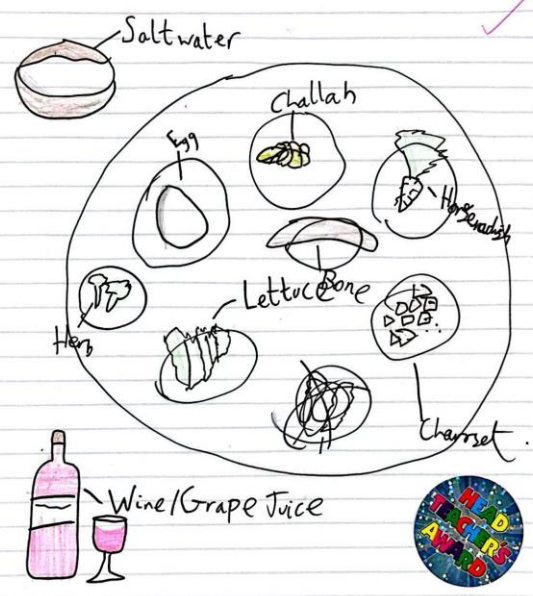 Saltwater
Challah
Egg
Horseradish
Bone
Lettuce
Herb
Charoset.
Wine/Grape Juice
HEAD
TEACHER'S
AWARD